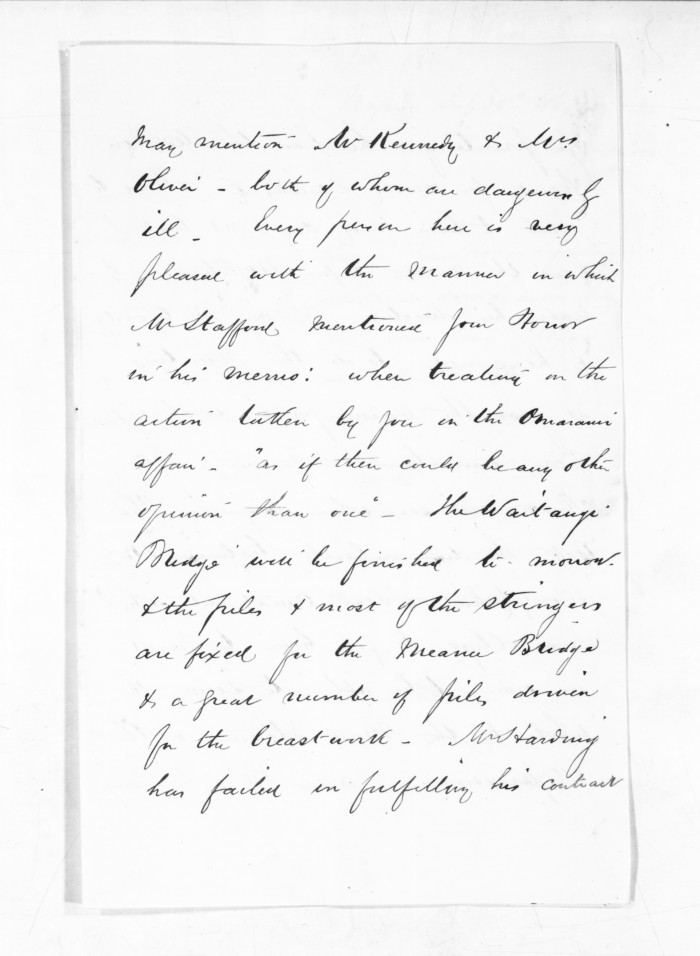 May mention Mr Kennedy & Mrs
Oliver - both of whom are dangerously
ill - Every person here is very
pleased with the manner in which
Mr Stafford mentioned your Honor
in his memo: when treating on the
action taken by you in the Omarunui
affair - "as if there could be any other
opinion than one" - The Waitangi
Bridge will be finished to-morrow.
& the piles & most of the stringers
are fixed for the Meanee Bridge
& a great number of piles driven
for the breastwork - Mr Harding
has failed in fulfilling his contract